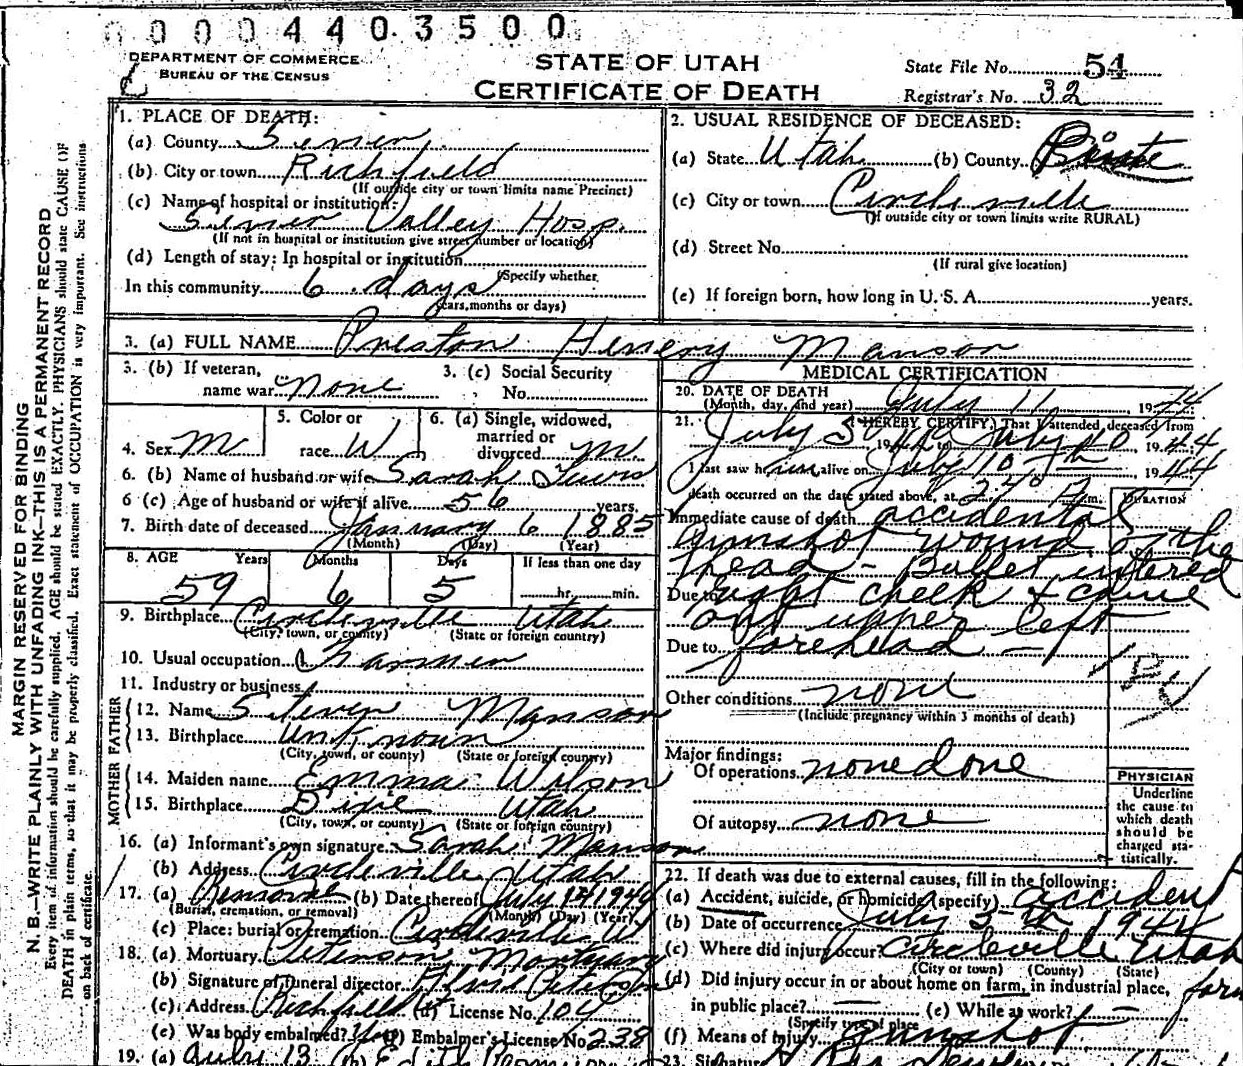 0000440.3500
DEPARTMENT OF COMMERCE
BUREAU OF THE CENSUS
STATE OF UTAH
CERTIFICATE OF DEATH
State File No. 54
Registrar's No. 32
MARGIN RESERVED FOR BINDING
N. B.—WRITE PLAINLY WITH UNFADING INK—THIS IS A PERMANENT RECORD
Every item of information should be carefully supplied. AGE should be stated EXACTLY. PHYSICIANS should state CAUSE OF
DEATH in plain terms, so that it may be properly classified. Exact statement of OCCUPATION is very important. See instructions
on back of certificate.
1. PLACE OF DEATH:
(a) County Sevier
(b) City or town Richfield
(If outside city or town limits name Precinct)
(c) Name of hospital or institution:
Sevier Valley Hosp.
(If not in hospital or institution give street number or location)
(d) Length of stay: In hospital or institution
(Specify whether
In this community 6 days
years, months or days)
2. USUAL RESIDENCE OF DECEASED:
(a) State Utah (b) County Piute
(c) City or town Circleville
(If outside city or town limits write RURAL)
(d) Street No.
(If rural give location)
(e) If foreign born, how long in U. S. A. years.
3. (a) FULL NAME Preston Henery Manson
3. (b) If veteran,
name war None
3. (c) Social Security
No.
4. Sex M
5. Color or
race W
6. (a) Single, widowed,
married or
divorced M.
6. (b) Name of husband or wife Sarah
6 (c) Age of husband or wife if alive 56 years.
7. Birth date of deceased January 6 1885
(Month) (Day) (Year)
8. AGE Years Months Days If less than one day
59 6 5 hr. min.
9. Birthplace Circleville Utah
(City, town, or county) (State or foreign country)
10. Usual occupation Farmer
11. Industry or business
FATHER
12. Name Steven Manson
13. Birthplace Unknown
(City, town, or county) (State or foreign country)
MOTHER
14. Maiden name Emma Wilson
15. Birthplace Dixie Utah
(City, town, or county) (State or foreign country)
16. (a) Informant's own signature Sarah Manson
(b) Address Circleville Utah
17. (a) Removal (b) Date thereof July 1944
(Burial, cremation, or removal) (Month) (Day) (Year)
(c) Place: burial or cremation Circleville U
18. (a) Mortuary Peterson Mortuary
(b) Signature of funeral director Peterson
(c) Address Richfield (d) License No. 104
(e) Was body embalmed? Yes (f) Embalmer's License No. 238
19. (a) July 13 (b) Edith
MEDICAL CERTIFICATION
20. DATE OF DEATH
(Month, day, and year) July 11 1944
21. I HEREBY CERTIFY, That I attended deceased from
July 5 1944 to July 10 1944
I last saw him alive on July 10 th 1944
death occurred on the date stated above, at m.
DURATION
Immediate cause of death accidental
gunshot wound of the
head - Bullet intered
Due to right cheek & came
out upper left
Due to forehead -
Other conditions none
(Include pregnancy within 3 months of death)
Major findings:
Of operations none done
Of autopsy none
PHYSICIAN
Underline
the cause to
which death
should be
charged sta-
tistically.
22. If death was due to external causes, fill in the following:
(a) Accident, suicide, or homicide (specify) accident
(b) Date of occurrence July 5th 1944
(c) Where did injury occur? Circleville Utah
(City or town) (County) (State)
(d) Did injury occur in or about home on farm, in industrial place, farm
in public place? — (e) While at work? —
(Specify type of place
(f) Means of injury gunshot
23. Signature